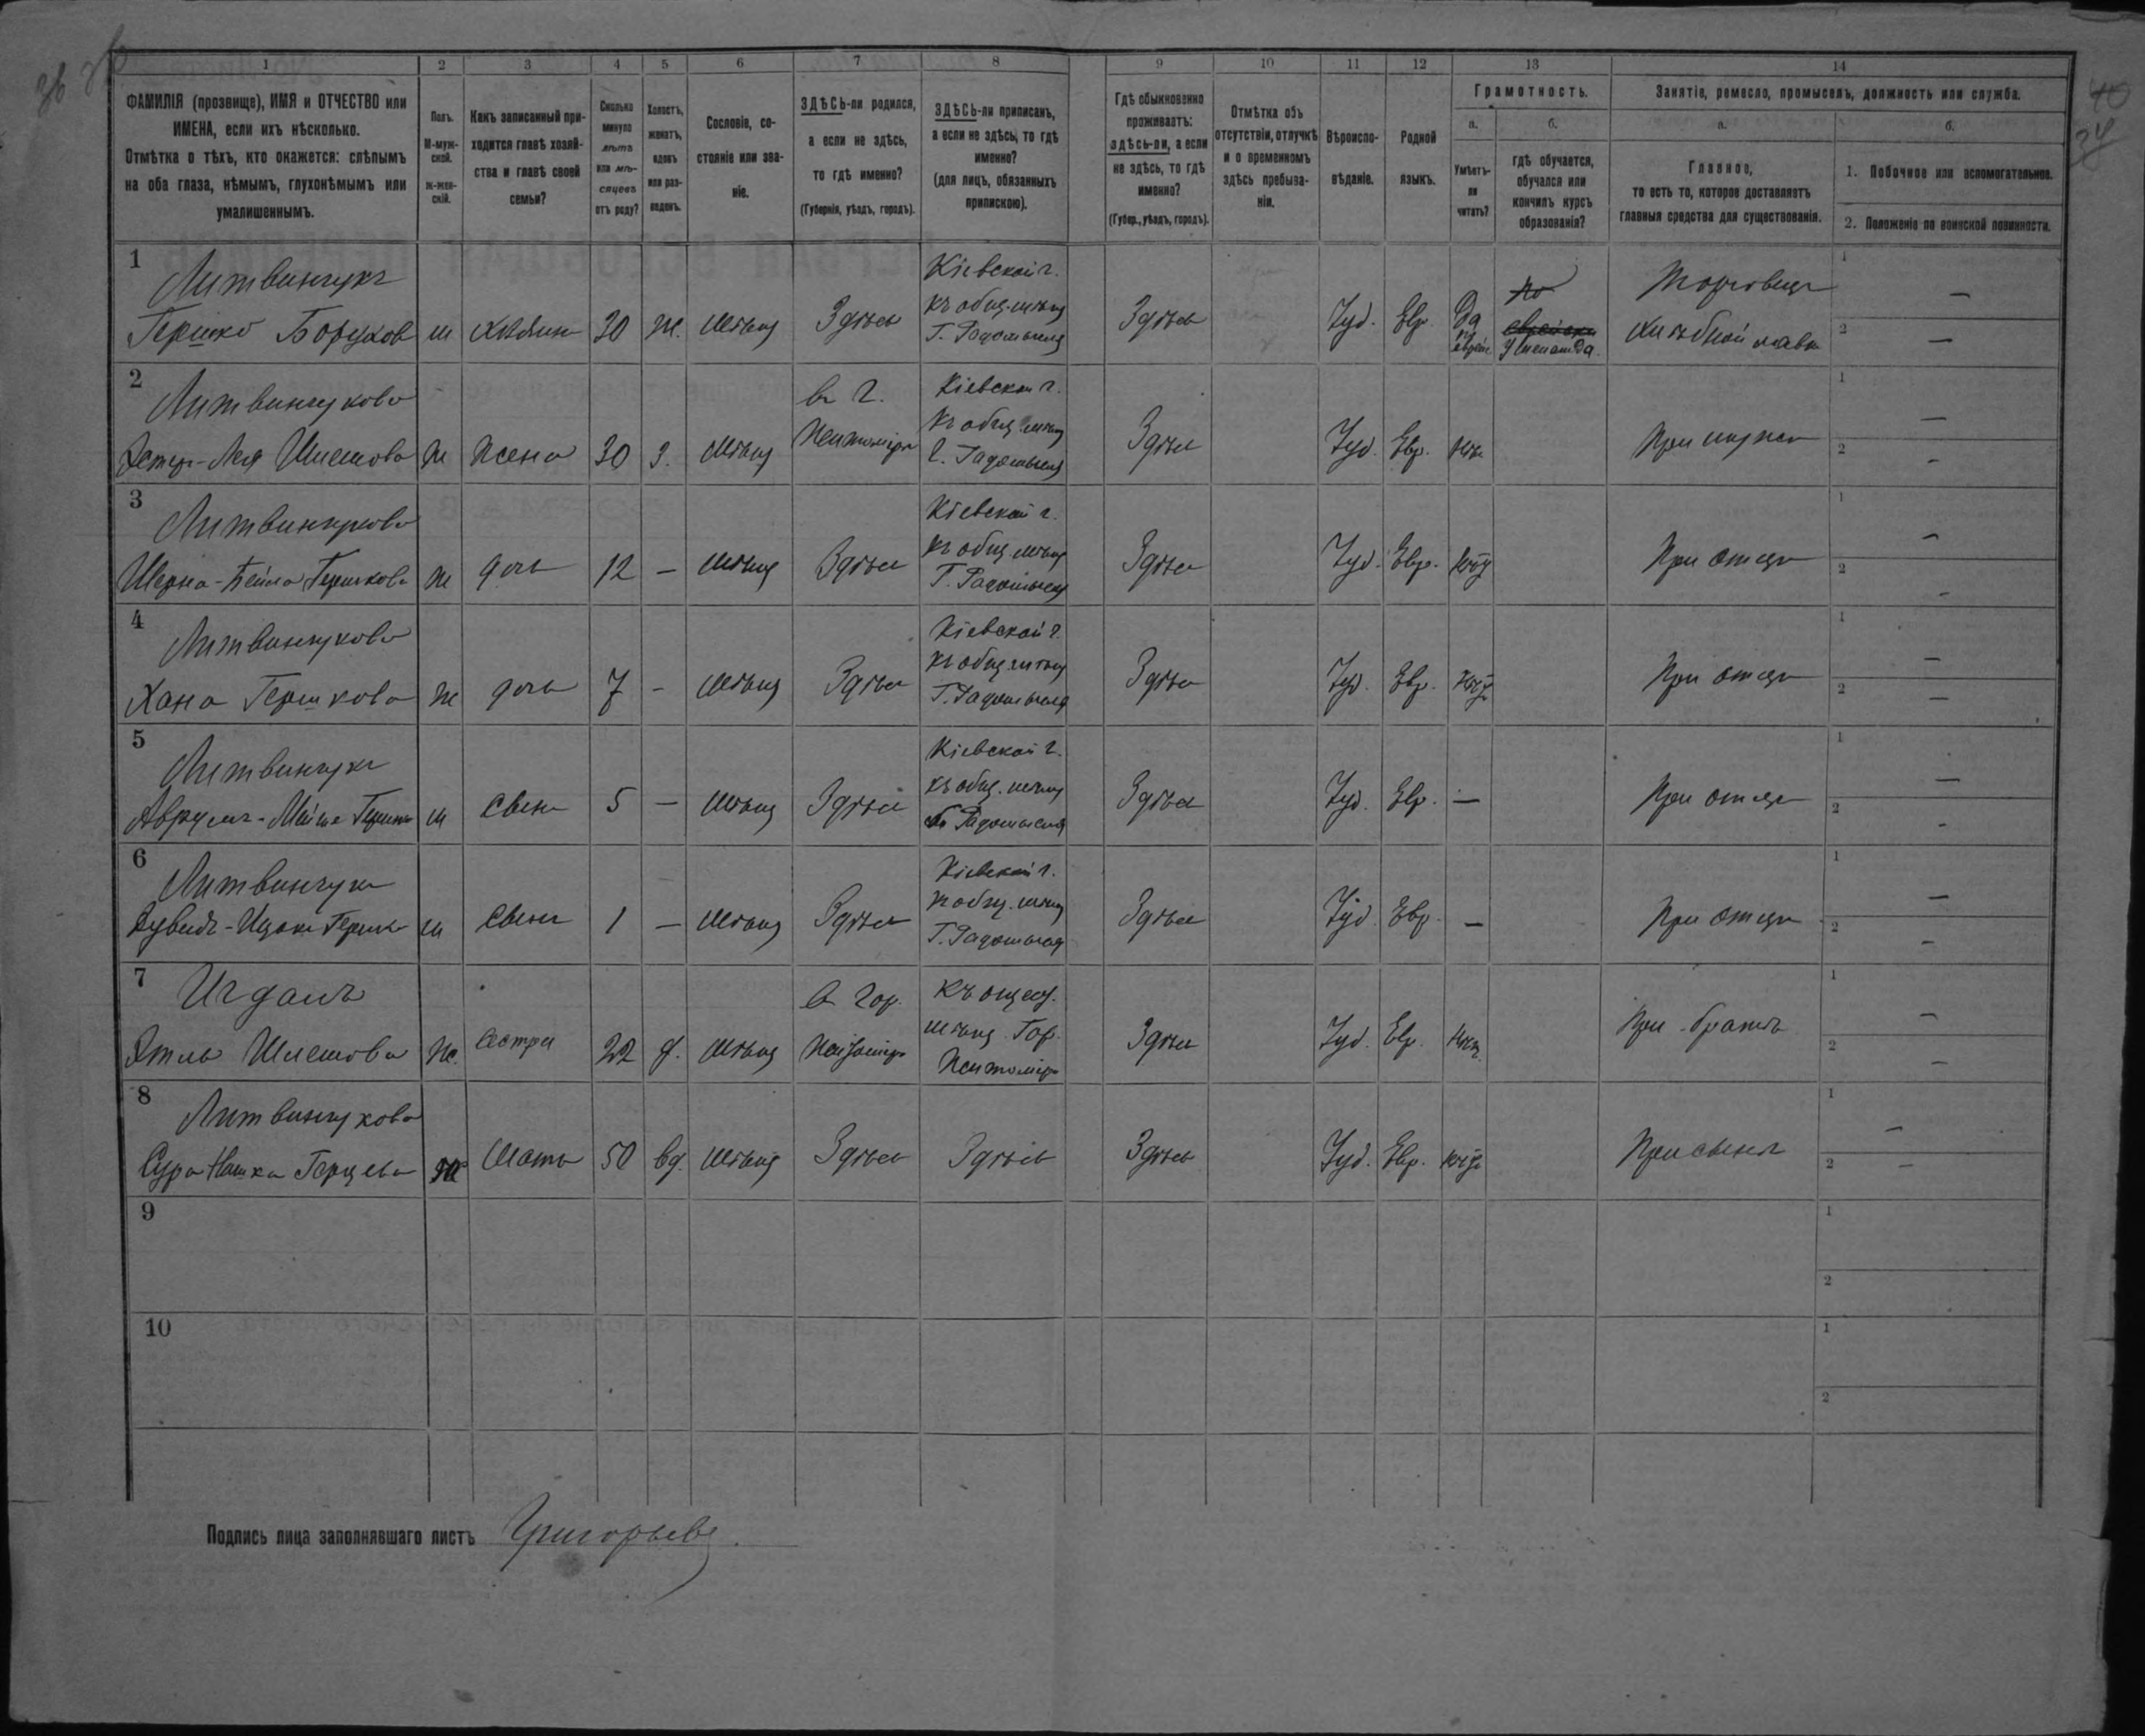 1 2 3 4 5 6 7 8 9 10 11 12 13 14
ФАМИЛІЯ (прозвище), ИМЯ и ОТЧЕСТВО или
ИМЕНА, если ихъ нѣсколько.
Отмѣтка о тѣхъ, кто окажется: слѣпымъ
на оба глаза, нѣмымъ, глухонѣмымъ или
умалишеннымъ.
Полъ.
М-муж-
ской.
ж-жен-
скій.
Какъ записанный при-
ходится главѣ хозяй-
ства и главѣ своей
семьи?
Сколько
минуло
лѣтъ
или мѣ-
сяцевъ
отъ роду?
Холостъ,
женатъ,
вдовъ
или раз-
веденъ.
Сословіе, со-
стояніе или зва-
ніе.
ЗДѢСЬ-ли родился,
а если не здѣсь,
то гдѣ именно?
(Губернія, уѣздъ, городъ).
ЗДѢСЬ-ли приписанъ,
а если не здѣсь, то гдѣ
именно?
(для лицъ, обязанныхъ
припискою).
Гдѣ обыкновенно
проживаетъ:
здѣсь-ли, а если
не здѣсь, то гдѣ
именно?
(Губер., уѣздъ, городъ).
Отмѣтка объ
отсутствіи, отлучкѣ
и о временномъ
здѣсь пребыва-
ніи.
Вѣроиспо-
вѣданіе.
Родной
языкъ.
Грамотность.
а.
Умѣетъ-
ли
читать?
б.
гдѣ обучается,
обучался или
кончилъ курсъ
образованія?
Занятіе, ремесло, промыселъ, должность или служба.
а.
Главное,
то есть то, которое доставляетъ
главныя средства для существованія.
б.
1. Побочное или вспомогательное.
2. Положеніе по воинской повинности.
1
Литвинчукъ
Гершко Борухов м хозяин 30 ж. мѣщ Здѣсь
Кіевской г.
къ общ. мѣщ
Г. Радомысля
Здѣсь Іуд. Евр. Да
по
еврейски
У меламда
Торговец
Хлѣбной лавк
1 —
2 —
2
Литвинчукова
Эстер-Лея Шлемова ж жена 30 з. мѣщ
в г.
Житомірѣ
Кіевской г.
къ общ мѣщ
г. Радомысля
Здѣсь Іуд. Евр. нѣт При мужѣ
1 —
2 —
3
Литвинчукова
Гершкова ж дочь 12 — мѣщ Здѣсь
Кіевской г.
къ общ. мѣщ
Г. Радомысля
Здѣсь Іуд. Евр. нѣт При отцѣ
1 —
2 —
4
Литвинчукова
Хана Гершкова ж дочь 7 — мѣщ Здѣсь
Кіевской г.
къ общ мѣщ
Г. Радомысля
Здѣсь Іуд. Евр. нѣт При отцѣ
1 —
2 —
5
Литвинчукъ
Аврумъ-Мойше Гершков м сынъ 5 — мѣщ Здѣсь
Кіевской г.
къ общ. мѣщ
Радомысля
Здѣсь Іуд. Евр. — При отцѣ
1 —
2 —
6
Литвинчукъ
Дувидъ-Ицко Гершков м сынъ 1 — мѣщ Здѣсь
Кіевской г.
къ общ. мѣщ
Г. Радомысля
Здѣсь Іуд. Евр. — При отцѣ
1 —
2 —
7
Шлемова ж. сестра 22 д. мѣщ
в гор.
Житомірѣ
мѣщ Гор.
Житомір
Здѣсь Іуд. Евр. нѣт. При братѣ
1 —
2 —
8
Литвинчукова
Сура Герцева ж мать 50 вд. мѣщ Здѣсь Здѣсь Здѣсь Іуд. Евр. нѣт При сынѣ
1 —
2 —
9
1
2
10
1
2
Подпись лица заполнявшаго листъ Григорьевъ.